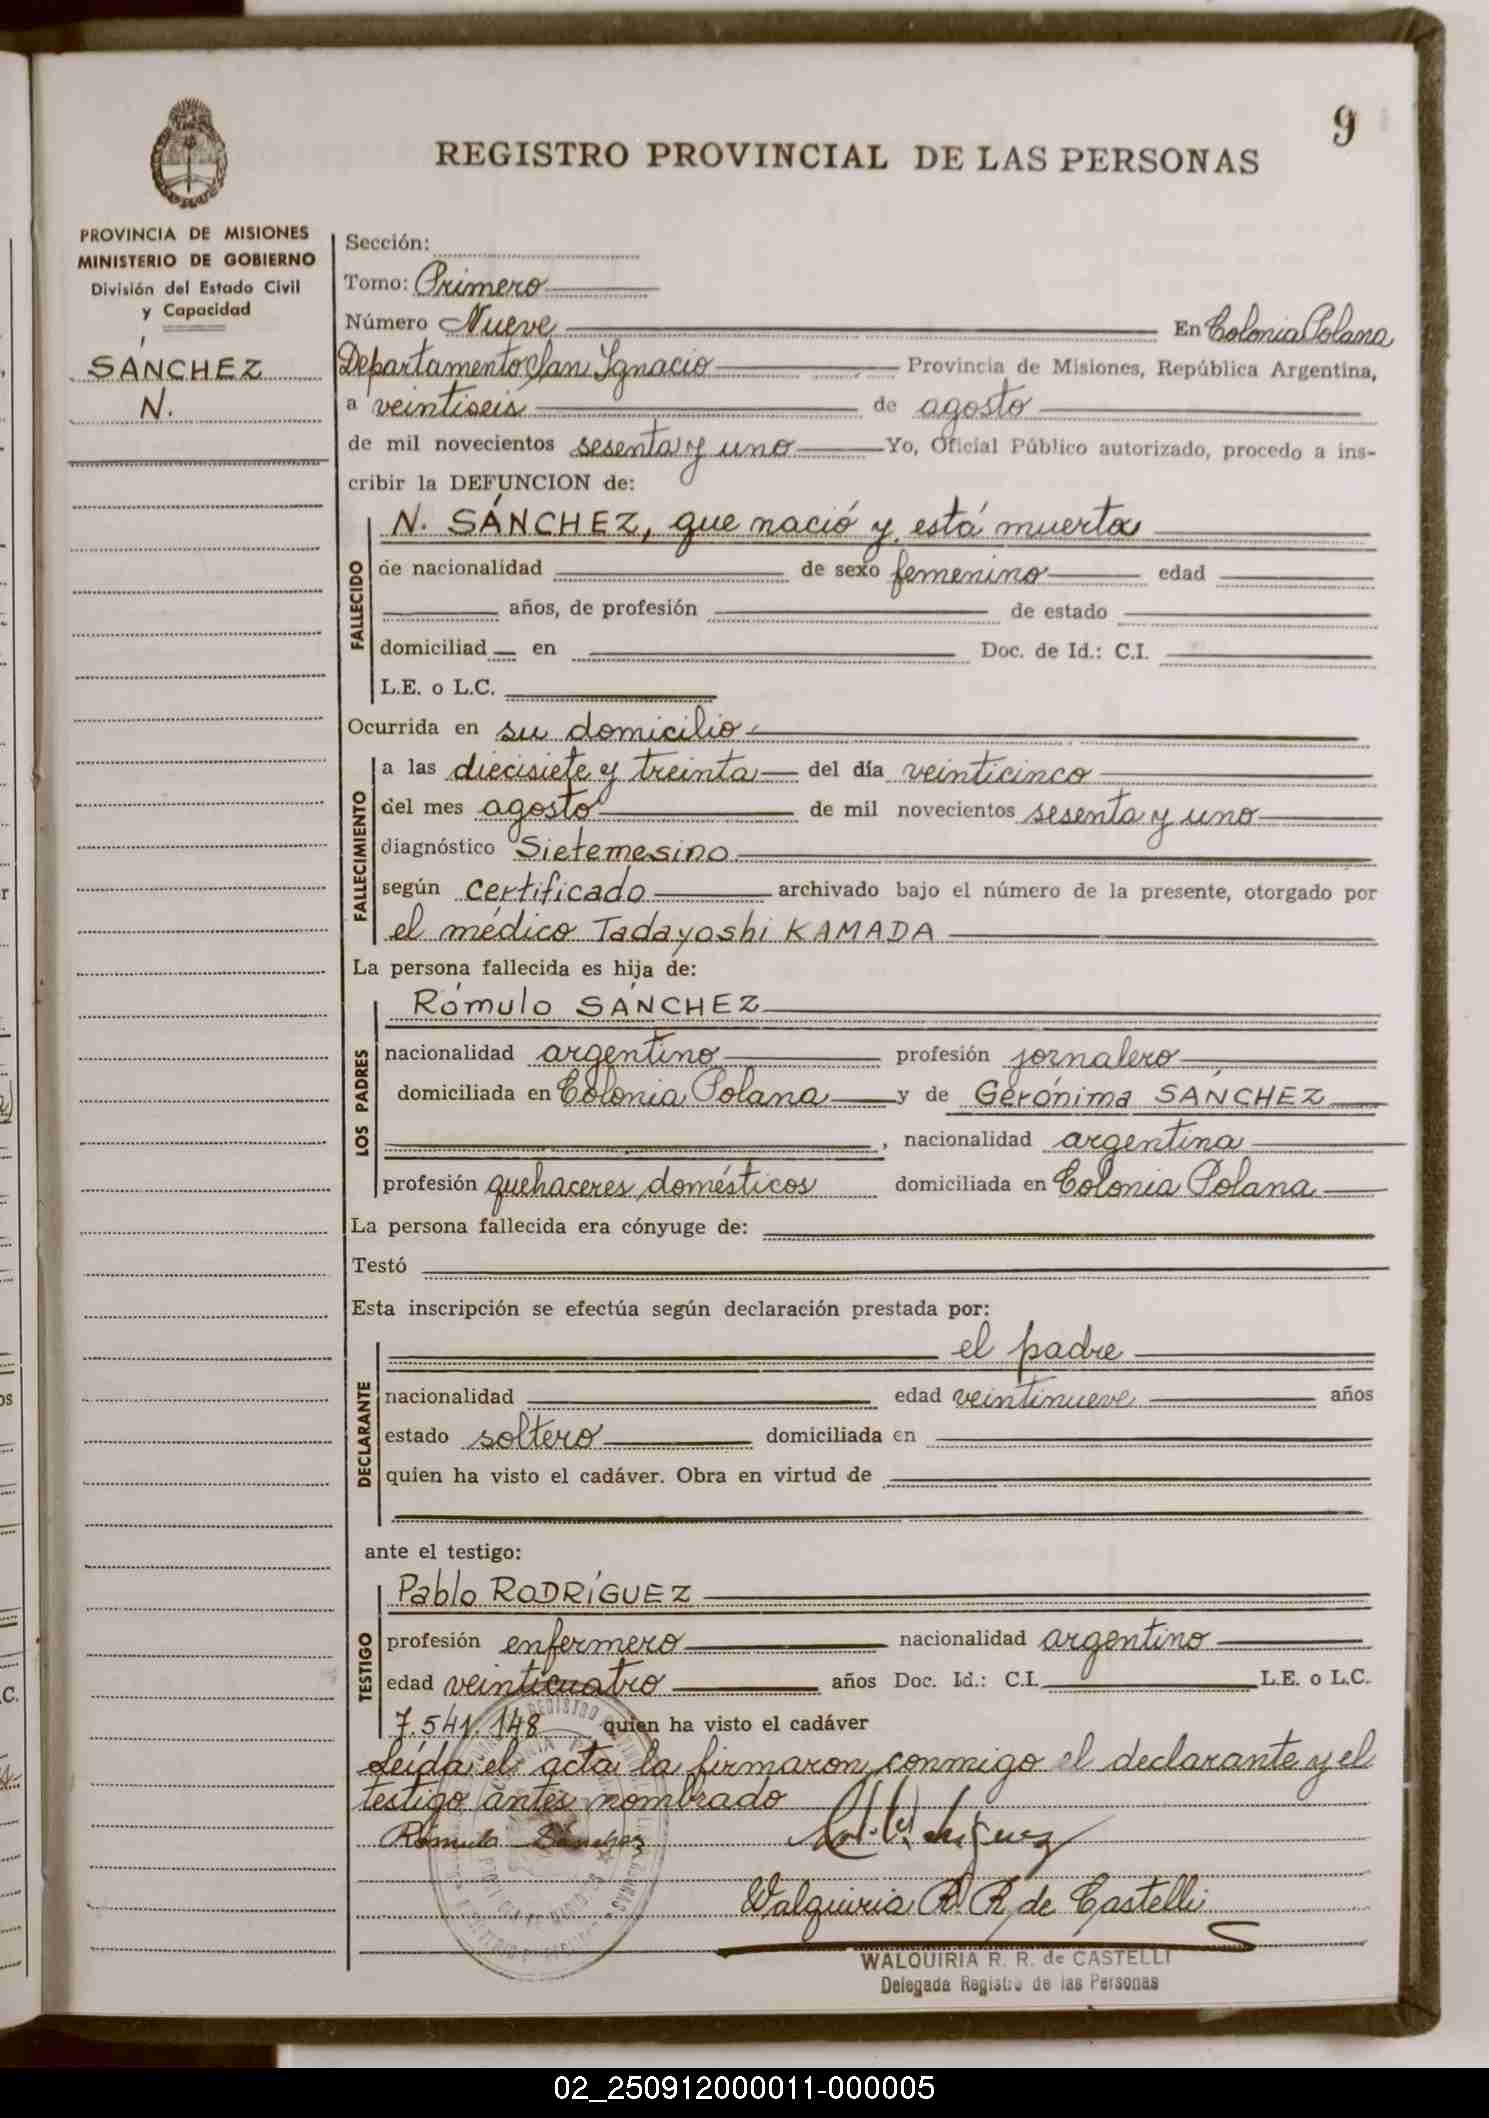 9
REGISTRO PROVINCIAL DE LAS PERSONAS
PROVINCIA DE MISIONES
MINISTERIO DE GOBIERNO
División del Estado Civil
y Capacidad
SÁNCHEZ
N.
Sección:
Tomo: Primero
Número Nueve En Colonia Polana
Departamento San Ignacio Provincia de Misiones, República Argentina,
a veintiseis de agosto
de mil novecientos sesenta y uno Yo, Oficial Público autorizado, procedo a ins-
cribir la DEFUNCION de:
N. SÁNCHEZ, que nació y está muerta
FALLECIDO
de nacionalidad de sexo femenino edad
años, de profesión de estado
domiciliad en Doc. de Id.: C.I.
L.E. o L.C.
Ocurrida en su domicilio
FALLECIMIENTO
a las diecisiete y treinta del día veinticinco
del mes agosto de mil novecientos sesenta y uno
diagnóstico Sietemesino
según certificado archivado bajo el número de la presente, otorgado por
el médico Tadayoshi KAMADA
La persona fallecida es hija de:
LOS PADRES
Rómulo SÁNCHEZ
nacionalidad argentino profesión jornalero
domiciliada en Colonia Polana y de Gerónima SÁNCHEZ
, nacionalidad argentina
profesión quehaceres domésticos domiciliada en Colonia Polana
La persona fallecida era cónyuge de:
Testó
Esta inscripción se efectúa según declaración prestada por:
DECLARANTE
el padre
nacionalidad edad veintinueve años
estado soltero domiciliada en
quien ha visto el cadáver. Obra en virtud de
ante el testigo:
TESTIGO
Pablo RODRÍGUEZ
profesión enfermero nacionalidad argentino
edad veinticuatro años Doc. Id.: C.I. L.E. o L.C.
7.541.148 quien ha visto el cadáver
Leída el acta la firmaron conmigo el declarante y el
testigo antes nombrado
Rómulo Sánchez
Walquiria R. R. de Castelli
WALQUIRIA R. R. de CASTELLI
Delegada Registro de las Personas
02_250912000011-000005